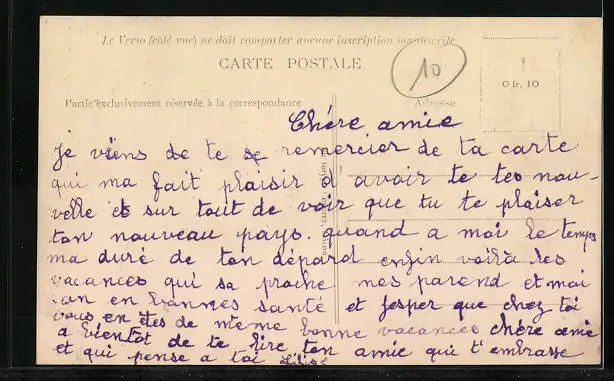 Le Verso (côté vue) ne doit comporter aucune inscription manuscrite
CARTE POSTALE
10
0 fr. 10
Partie exclusivement réservée à la correspondance
Adresse
Chére amie
Je viens de te remercier de ta carte
qui ma fait plaisir d'avoir te tes nou-
velle et sur tout de voir que tu te plaiser
ton nouveau pays. quand a moi le temps
ma duré de ton dépard enfin voilà les
vacances qui sa proche mes parend et moi
an en bonnes santé et jesper que chez toi
vous en êtes de meme bonne vacances chére amie
a bientot de te lire ton amie qui t'embrasse
et qui pense a toi